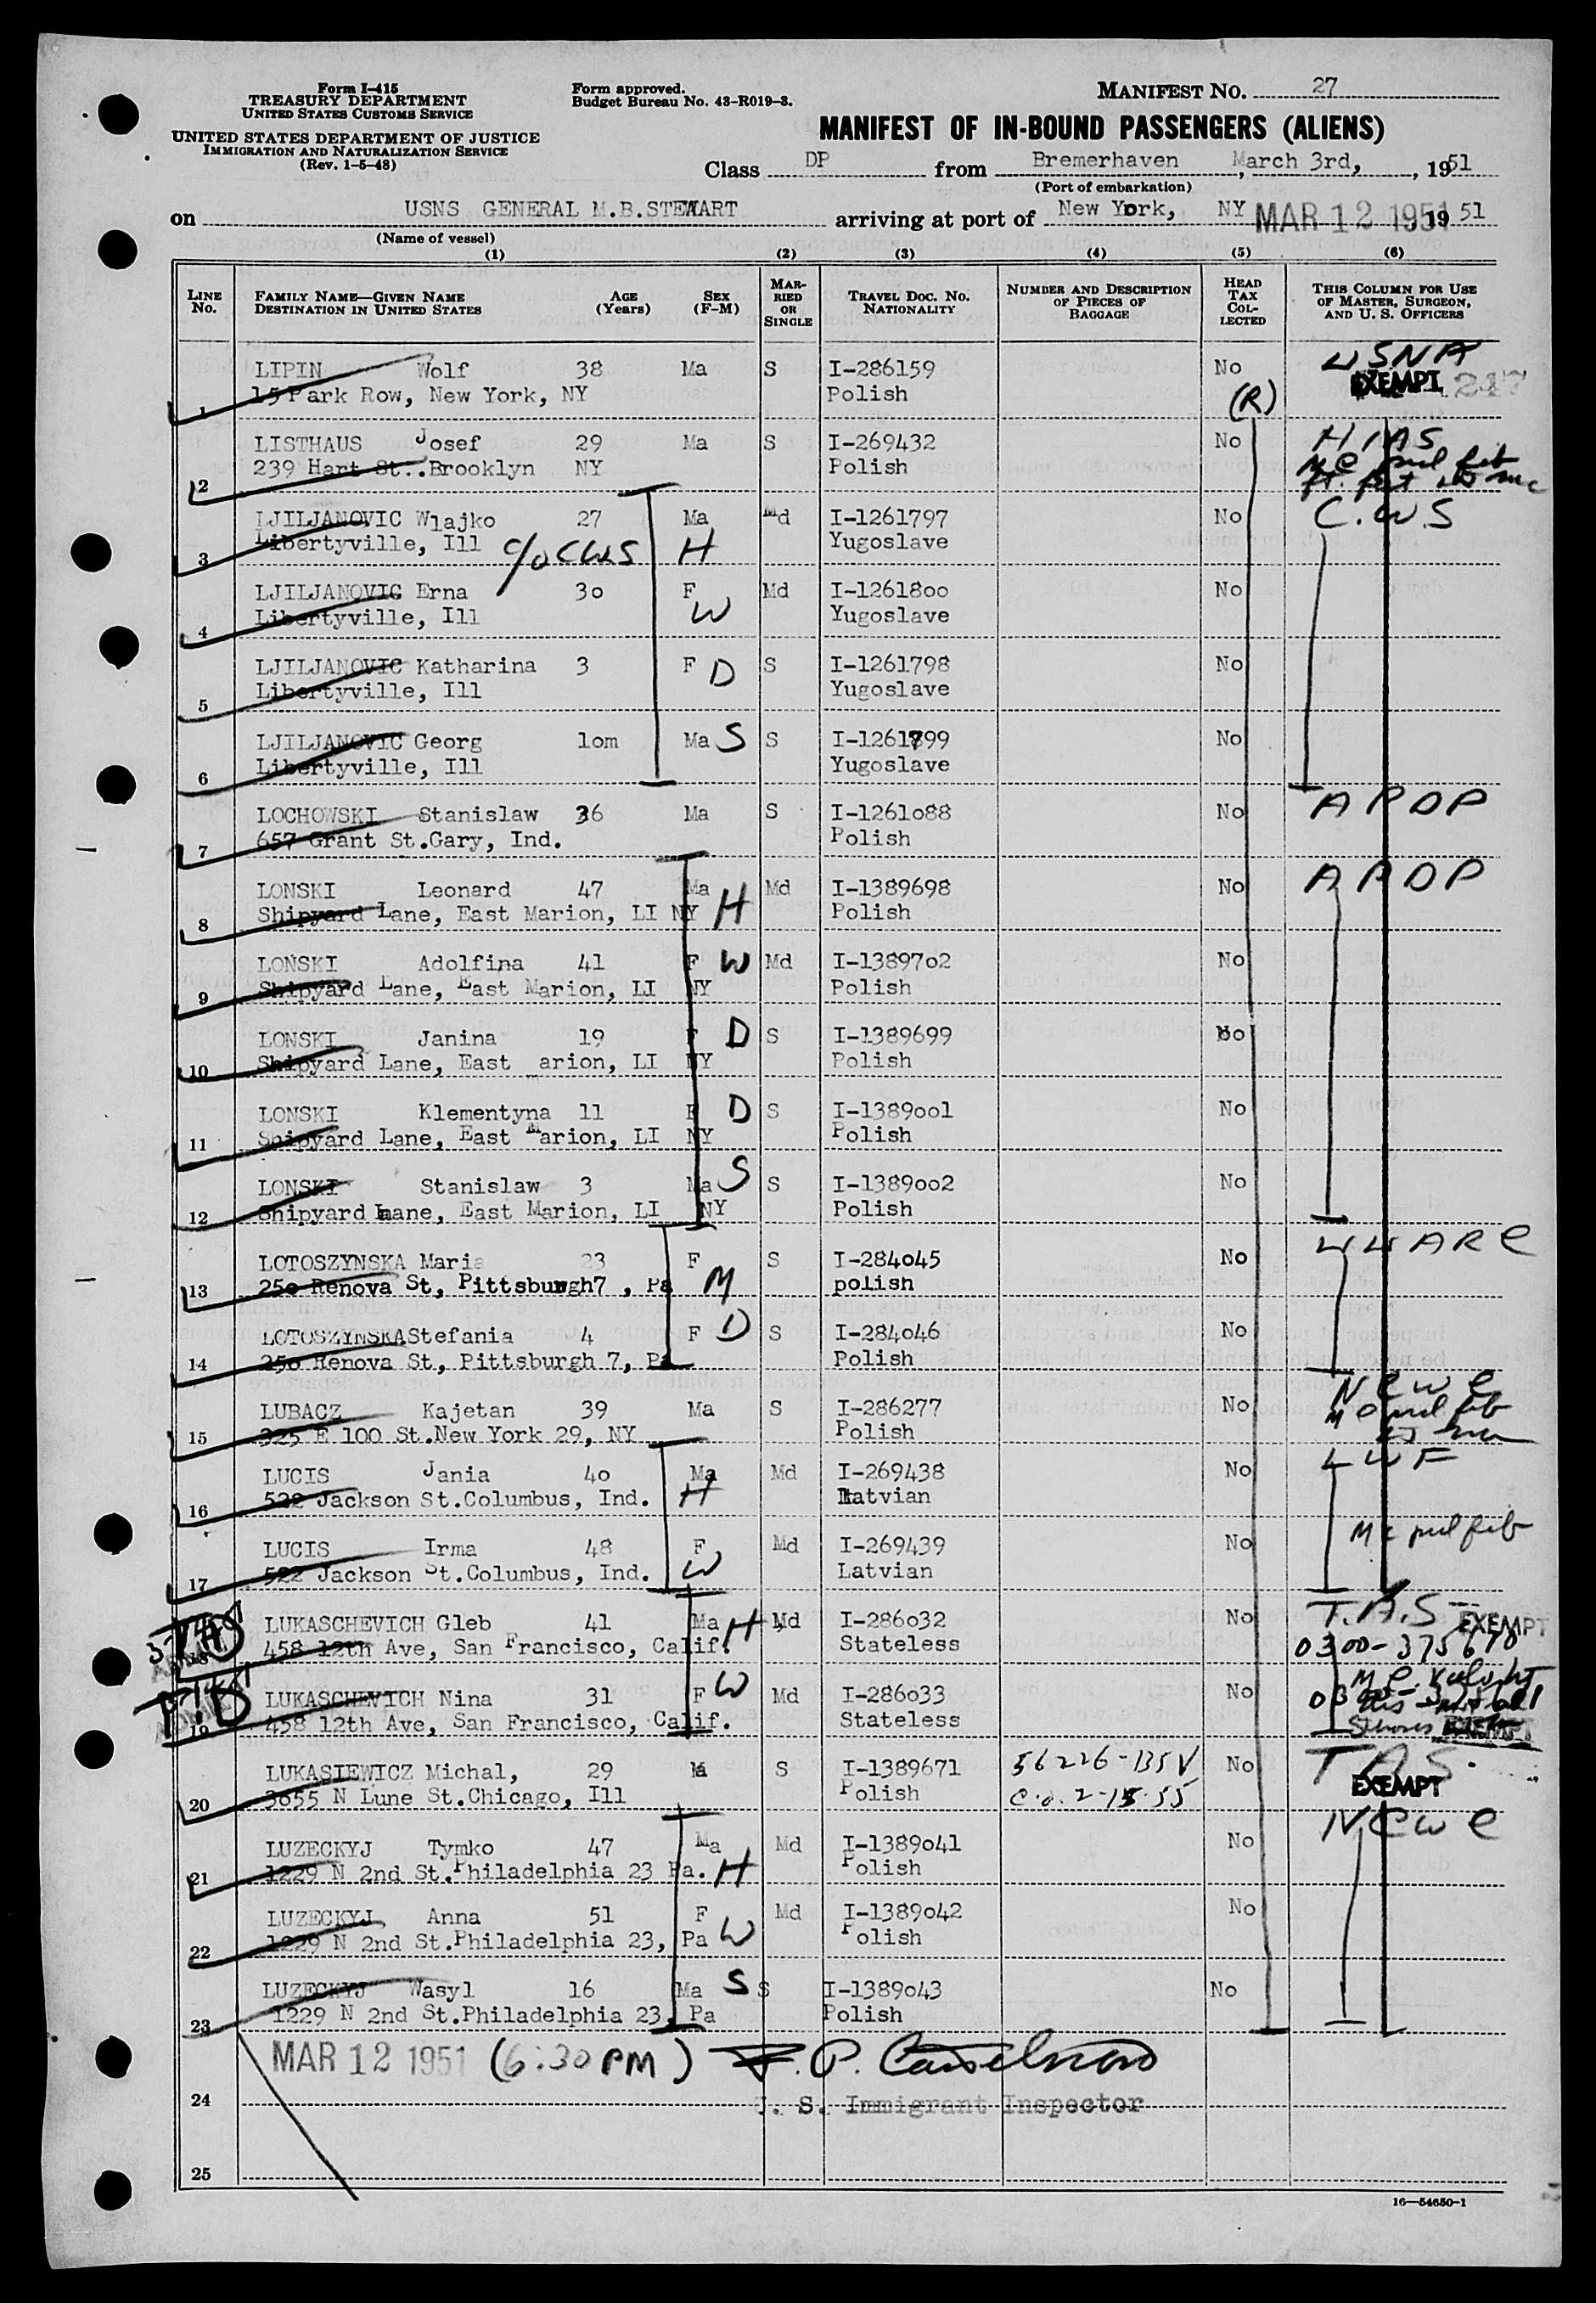 Form I-415
TREASURY DEPARTMENT
UNITED STATES CUSTOMS SERVICE
UNITED STATES DEPARTMENT OF JUSTICE
IMMIGRATION AND NATURALIZATION SERVICE
(Rev. 1-5-48)
Form approved.
Budget Bureau No. 43-R019-3.
MANIFEST NO. 27
MANIFEST OF IN-BOUND PASSENGERS (ALIENS)
Class DP from Bremerhaven, March 3rd, , 1951
(Port of embarkation)
on USNS GENERAL M.B.STEWART arriving at port of New York, NY MAR 12 1951 19 51
(Name of vessel)
(1) (2) (3) (4) (5) (6)
LINE NO. FAMILY NAME—GIVEN NAME DESTINATION IN UNITED STATES AGE (Years) SEX (F-M) MARRIED OR SINGLE TRAVEL DOC. NO. NATIONALITY NUMBER AND DESCRIPTION OF PIECES OF BAGGAGE HEAD TAX COLLECTED THIS COLUMN FOR USE OF MASTER, SURGEON, AND U. S. OFFICERS
LIPIN Wolf 38 Ma S I-286159 No USNA
1 15 Park Row, New York, NY Polish (R) EXEMPT 247
LISTHAUS Josef 29 Ma S I-269432 No HIAS
2 239 Hart St..Brooklyn NY Polish
LJILJANOVIC Wlajko 27 Ma Md I-1261797 No C.W.S
3 Libertyville, Ill c/o CWS H Yugoslave
LJILJANOVIC Erna 30 F Md I-1261800 No
4 Libertyville, Ill W Yugoslave
LJILJANOVIC Katharina 3 F D S I-1261798 No
5 Libertyville, Ill Yugoslave
LJILJANOVIC Georg 1om Ma S S I-1261799 No
6 Libertyville, Ill Yugoslave
LOCHOWSKI Stanislaw 36 Ma S I-1261088 No APDP
7 657 Grant St.Gary, Ind. Polish
LONSKI Leonard 47 Ma H Md I-1389698 No APDP
8 Shipyard Lane, East Marion, LI NY Polish
LONSKI Adolfina 41 F W Md I-1389702 No
9 Shipyard Lane, East Marion, LI NY Polish
LONSKI Janina 19 F D S I-1389699 No
10 Shipyard Lane, East marion, LI NY Polish
LONSKI Klementyna 11 F D S I-1389001 No
11 Shipyard Lane, East Marion, LI NY Polish
LONSKI Stanislaw 3 Ma S S I-1389002 No
12 Shipyard Lane, East Marion, LI NY Polish
LOTOSZYNSKA Maria 23 F S I-284045 No UUARC
13 250 Renova St, Pittsburgh7 , Pa M polish
LOTOSZYNSKA Stefania 4 F D S I-284046 No
14 250 Renova St, Pittsburgh 7, Pa Polish
LUBACZ Kajetan 39 Ma S I-286277 No NCWC
15 325 E 100 St.New York 29, NY Polish
LUCIS Jania 40 Ma Md I-269438 No LWF
16 522 Jackson St.Columbus, Ind. H Latvian
LUCIS Irma 48 F Md I-269439 No Mc pul fib
17 522 Jackson St.Columbus, Ind. W Latvian
LUKASCHEVICH Gleb 41 Ma H Md I-286032 No T.A.S EXEMPT
18 458 12th Ave, San Francisco, Calif. Stateless 0300-375670
LUKASCHEVICH Nina 31 F W Md I-286033 No
19 458 12th Ave, San Francisco, Calif. Stateless
LUKASIEWICZ Michal, 29 Ma S I-1389671 56226-135V No T.A.S.
20 3655 N Lune St.Chicago, Ill Polish C.O. 2-15-55 EXEMPT
LUZECKYJ Tymko 47 Ma Md I-1389041 No NCWC
21 1229 N 2nd St.Philadelphia 23 Pa. H Polish
LUZECKYJ Anna 51 F Md I-1389042 No
22 1229 N 2nd St.Philadelphia 23, Pa W Polish
LUZECKYJ Wasyl 16 Ma S S I-1389043 No
23 1229 N 2nd St.Philadelphia 23, Pa Polish
MAR 12 1951 (6:30 PM)
24 U. S. Immigrant Inspector
25
16—54650-1